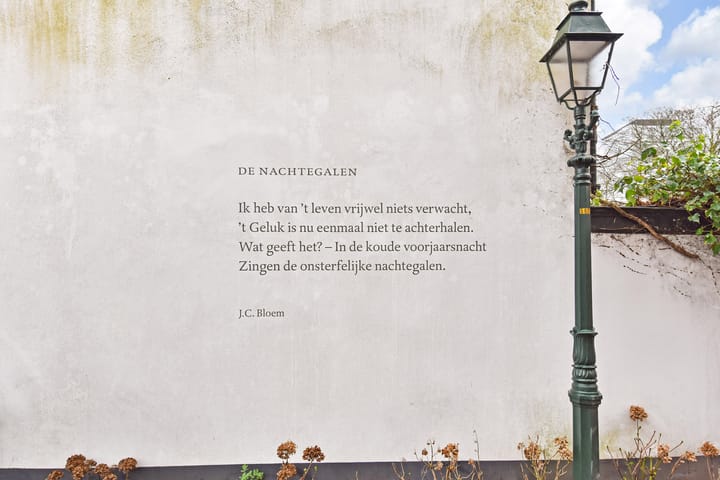 DE NACHTEGALEN
Ik heb van ’t leven vrijwel niets verwacht,
’t Geluk is nu eenmaal niet te achterhalen.
Wat geeft het? – In de koude voorjaarsnacht
Zingen de onsterfelijke nachtegalen.
J.C. Bloem